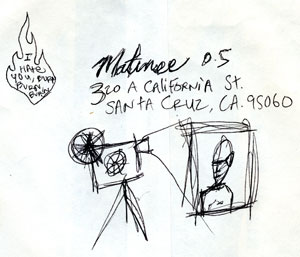 I
HATE
YOU, BURN
BURN
BURN
Matinee 0.5
320 A CALIFORNIA ST.
SANTA CRUZ, CA. 95060